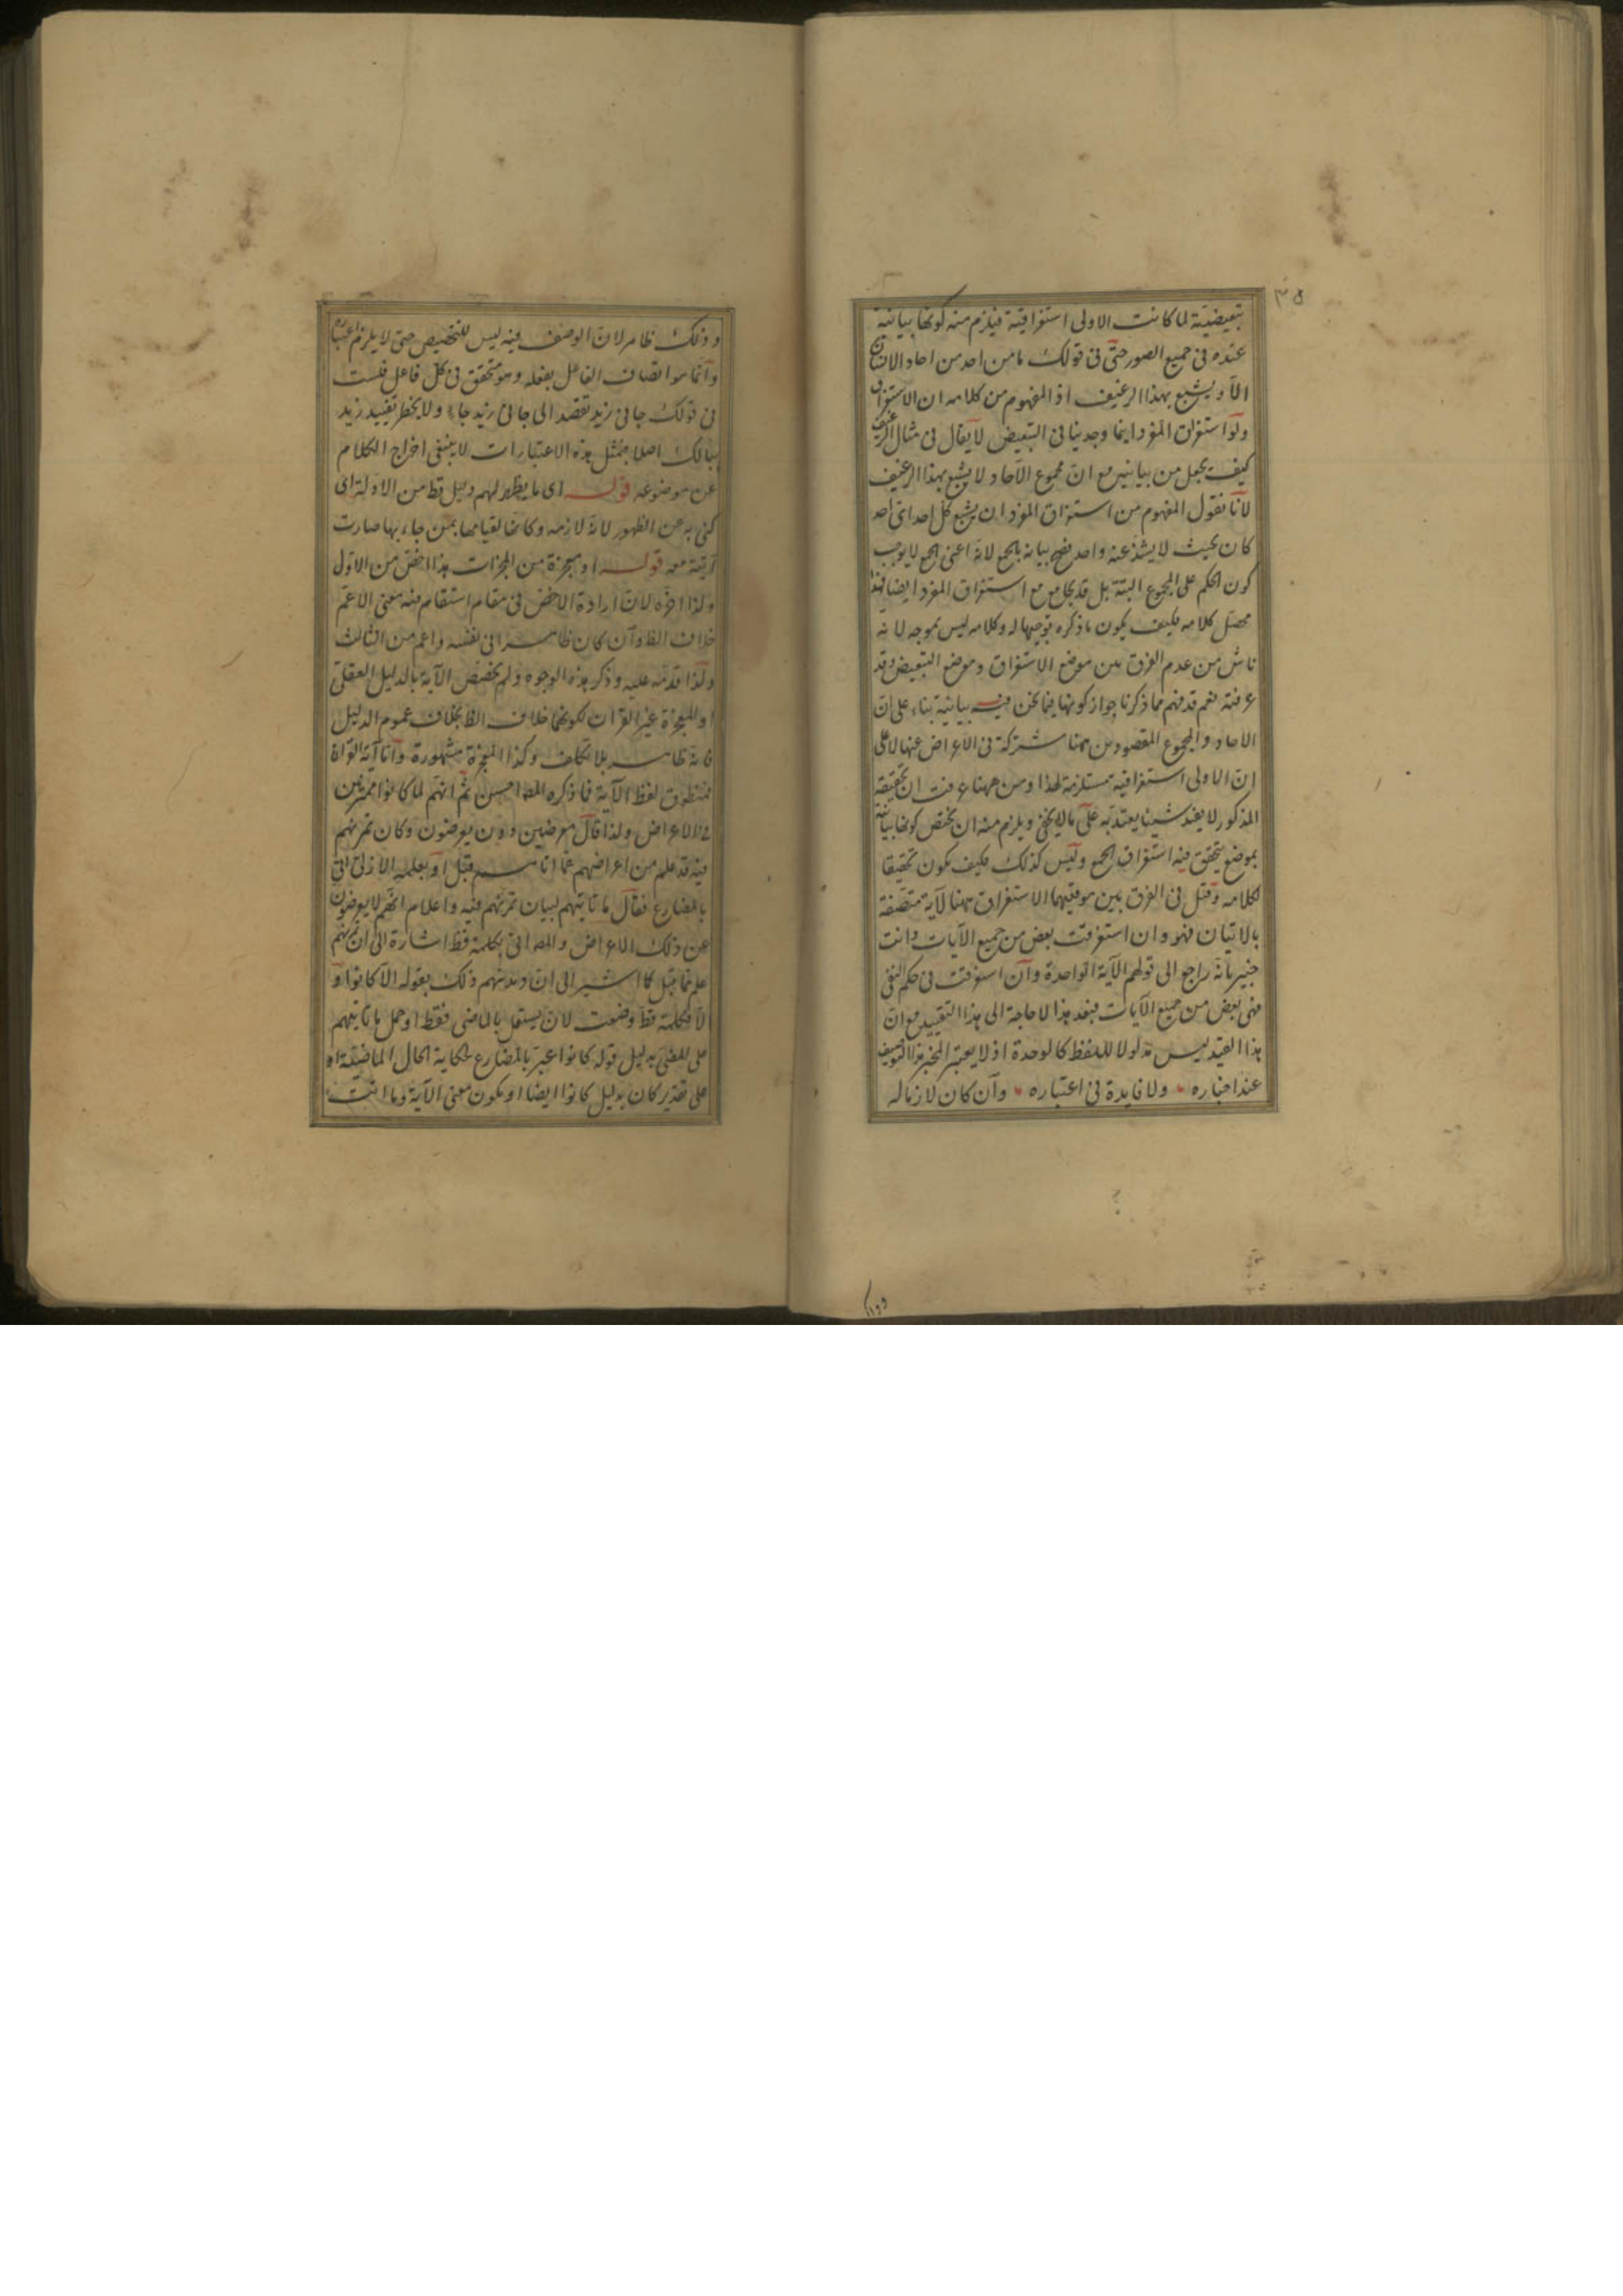 ٣٥
تبعيضيّة لما كانت الاولى استغراقية فيلزم منه كونها بيانية
عنده فى جميع الصور حتّى فى قولك ما من احد من احاد الانسان
الّا ويشبع بهذا الرغيف اذ المفهوم من كلامه ان الاستغراق
ولو استغراق المفرد اينما وجد ينافى التبعيض لا يقال فى مثال الرغيف
كيف يجعل من بيانيه مع انّ مجموع الآحاد لا يشبع بهذا الرغيف
لانّا نقول المفهوم من استغراق المفرد ان يشبع كل احد اىّ احد
كان بحيث لا يشذ عنه واحد فصح بيانه بالجمع لانه اعنى الجمع لا يوجب
كون الحكم على المجموع البتة بل قد يجامع مع استغراق المفرد ايضا فهذا
محصّل كلامه فكيف يكون ما ذكره توجيها له وكلامه ليس بموجه لانه
ناش من عدم الفرق بين موضع الاستغراق وموضع التبعيض وقد
عرفته نعم قد فهم مما ذكرنا جواز كونها فيما نحن فيه بيانية بناء على انّ
الاحاد والمجموع المقصودين ههنا مشتركة فى الاعراض عنها لا على
انّ الاولى استغراقية مستلزمة لهذا ومن ههنا عرفت ان تحقيقه
المذكور لا يفيد شيئا يعتدّ به على ما لا يخفى ويلزم منه ان يختص كونها بيانية
بموضع يتحقق فيه استغراق الجمع وليس كذلك فكيف يكون تحقيقا
لكلامه وقيل فى الفرق بين موقعيهما الاستغراق ههنا لآية متصفة
بالاتيان فهو وان استغرقت بعض من جميع الآيات وانت
خبير بانه راجع الى قولهم الآية الواحدة وان استغرقت فى حكم النفى
فهى بعض من جميع الآيات فبعد هذا لا حاجة الى هذا التقييد مع انّ
هذا القيد ليس مدلولا للفظ كالوحدة اذ لا يعتبر المخبر هذا التوصيف
عند اخباره ولا فايدة فى اعتباره وان كان لازما له
وذلك ظاهر لان الوصف فيه ليس للتخصيص حتى لا يلزم اعتباره
وانّما هو اتصاف الفاعل بفعله وهو متحقق فى كل فاعل فلست
فى قولك جاءنى زيد تقصد الى جاءنى زيد جاء ولا يخطر تقييد زيد
ببالك اصلا فمثل هذه الاعتبارات لا ينبغى اخراج الكلام
عن موضوعه قوله اى ما يظهر لهم دليل قط من الادلة اى
كنى به عن الظهور لانه لازمه وكانها لقيامها بمن جاء بها صارت
آتية معه قوله او معجزة من المعجزات هذا اخصّ من الاول
ولذا اخّره لانّ ارادة الاخصّ فى مقام استقام فيه معنى الاعمّ
خلاف الظ وان كان ظاهرا فى نفسه واعم من الثالث
ولذا قدّمه عليه وذكر هذه الوجوه ولم يخصّص الآية بالدليل العقلى
او المعجزة غير القران لكونهما خلاف الظ بخلاف عموم الدليل
فانه ظاهر بلا تكلف وكذا المعجزة مشهورة وامّا آية القراة
فمنطوق لفظ الآية فما ذكره المص احسن ثم انهم لما كانوا متمرنين
فى الاعراض ولذا قال معرضين دون يعرضون وكان تمرنهم
فيه قد علم من اعراضهم عمّا اتاهم قبل او بعلمه الازلى اتى
بالمضارع فقال ما تاتيهم لبيان تمرنهم فيه واعلام انهم لا يعرضون
عن ذلك الاعراض والمص اتى بكلمة قط اشارة الى ان تمرنهم
علم مما قبل كما اشير الى ان ديدنهم ذلك بقوله الا كانوا و
الّا فكلمة قط وضعت لان يستعمل بالماضى فقط او حمل ما تاتيهم
على المضى بدليل قوله كانوا عبر بالمضارع لحكاية الحال الماضية او
على تقدير كان بدليل كانوا ايضا او يكون معنى الآية وما اتت